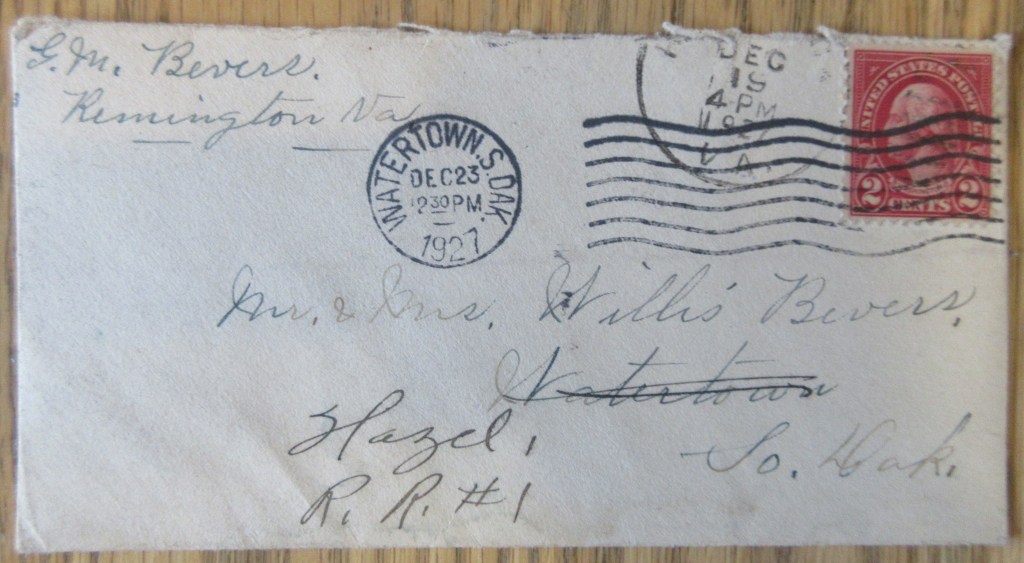 G. M. Bevers.
Remington Va
WATERTOWN. S. DAK.
DEC 23
2 30 PM
1927
DEC
19
4 PM
192
VA.
UNITED STATES POSTAGE
2 CENTS 2
Mr. & Mrs. Willis Bevers.
Watertown
Hazel,
So. Dak.
R. R. #1